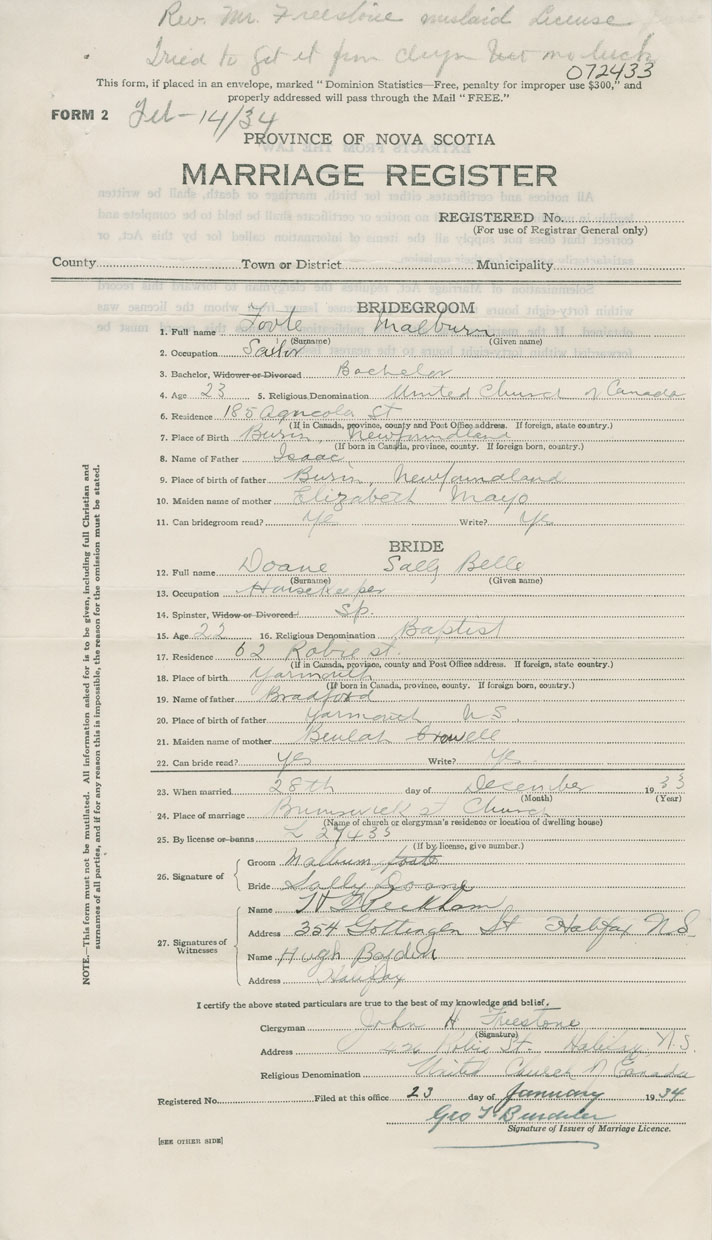 Rev. Mr. Freestone mislaid License
Tried to get it from clergn but no luck
072433
This form, if placed in an envelope, marked "Dominion Statistics—Free, penalty for improper use $300," and
properly addressed will pass through the Mail "FREE."
FORM 2 Feb-14/34
PROVINCE OF NOVA SCOTIA
MARRIAGE REGISTER
REGISTERED No.
(For use of Registrar General only)
County Town or District Municipality
BRIDEGROOM
1. Full name Foote Malburn
(Surname) (Given name)
2. Occupation Sailor
3. Bachelor, Widower or Divorced Bachelor
4. Age 23 5. Religious Denomination United Church of Canada
6. Residence 185 Agricola St
(If in Canada, province, county and Post Office address. If foreign, state country.)
7. Place of Birth Burin, Newfoundland
(If born in Canada, province, county. If foreign born, country.)
8. Name of Father Isaac
9. Place of birth of father Burin, Newfoundland
10. Maiden name of mother Elizabeth Mayo
11. Can bridegroom read? Yes Write? Yes
BRIDE
12. Full name Doane Sally Belle
(Surname) (Given name)
13. Occupation Housekeeper
14. Spinster, Widow or Divorced. Sp.
15. Age 22 16. Religious Denomination Baptist
17. Residence 62 Robie st.
(If in Canada, province, county and Post Office address. If foreign, state country.)
18. Place of birth Yarmouth
(If born in Canada, province, county. If foreign born, country.)
19. Name of father Bradford
20. Place of birth of father Yarmouth N S
21. Maiden name of mother Beulah Crowell
22. Can bride read? Yes Write? Yes
23. When married 28th day of December 1933
(Month) (Year)
24. Place of marriage Brunswick st Church
(Name of church or clergyman's residence or location of dwelling house)
25. By license or banns L 27433
(If by license, give number.)
26. Signature of
Groom Malburn foote
Bride Sally Doane
27. Signatures of Witnesses
Name Peckham
Address 354 Gottingen St Halifax N.S.
Name Hugh
Address Halifax
I certify the above stated particulars are true to the best of my knowledge and belief.
Clergyman John H Freestone
(Signature)
Address Robie St. Halifax N.S.
Religious Denomination United Church of Canada
Registered No. Filed at this office 23 day of January 1934
Geo
Signature of Issuer of Marriage Licence.
[SEE OTHER SIDE]
NOTE.—This form must not be mutilated. All information asked for is to be given, including full Christian and
surnames of all parties, and if for any reason this is impossible, the reason for the omission must be stated.